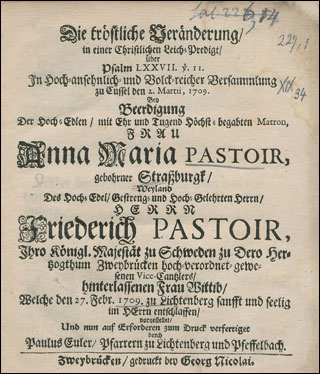 229,1
XIX
34
Die tröstliche Veränderung/
in einer Christlichen Leich-Predigt/
über
Psalm LXXVII. ỳ. 11.
In Hoch-ansehnlich- und Volck-reicher Versammlung
zu Cussel den 2. Martii, 1709.
Bey
Beerdigung
Der Hoch-Edlen/ mit Ehr und Tugend Höchst-begabten Matron,
FRAU
Anna Maria PASTOIR,
gebohrner Straßburgk/
Weyland
Des Hoch-Edel/ Gestreng- und Hoch-Gelehrten Herrn/
HERRN
Friederich PASTOIR,
Ihro Königl. Majestät zu Schweden zu Dero Her-
tzogthum Zweybrücken hoch-verordnet-gewe-
senen Vice-Cantzlers/
hinterlassenen Frau Wittib/
Welche den 27. Febr. 1709. zu Lichtenberg saufft und seelig
im HErrn entschlaffen/
vorgestellet/
Und nun auf Erfordern zum Druck verfertiget
durch
Paulus Euler/ Pfarrern zu Lichtenberg und Pfeffelbach.
Zweybrücken/ gedruckt bey Georg Nicolai.